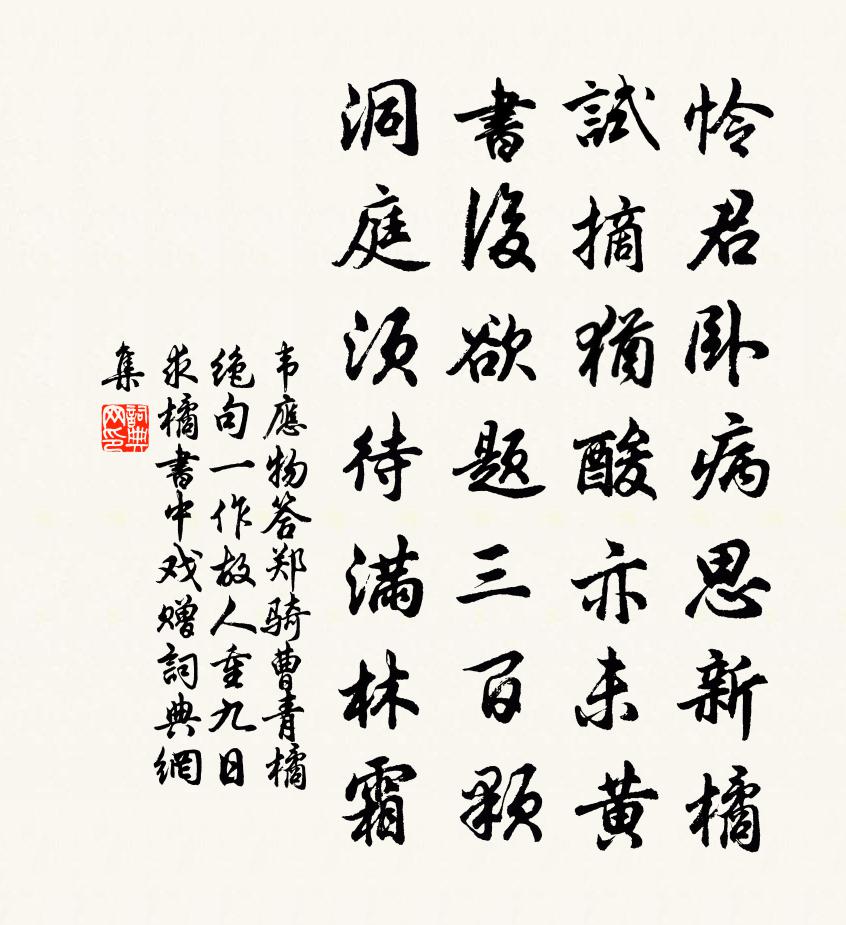 怜君卧病思新橘
試摘猶酸亦未黄
書後欲题三百颗
洞庭须待满林霜
韦應物答郑骑曹青橘
绝句一作故人重九日
求橘書中戏赠詞典網
集
詞典网印